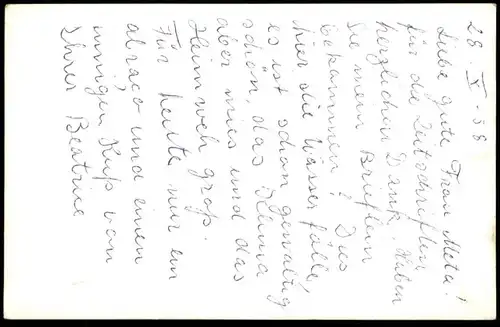 28.X.58
Liebe gute Frau Meta!
für die Zeitschriften
herzlichen Dank. Haben
Sie mein Brieflein
bekommen? Dies
hier die Wasserfälle,
es ist schon gewaltig
schön, das Klima
aber mies und das
Heimweh groß.
Für heute nur ein
abraço und einen
innigen Kuß von
Ihrer Beatrice